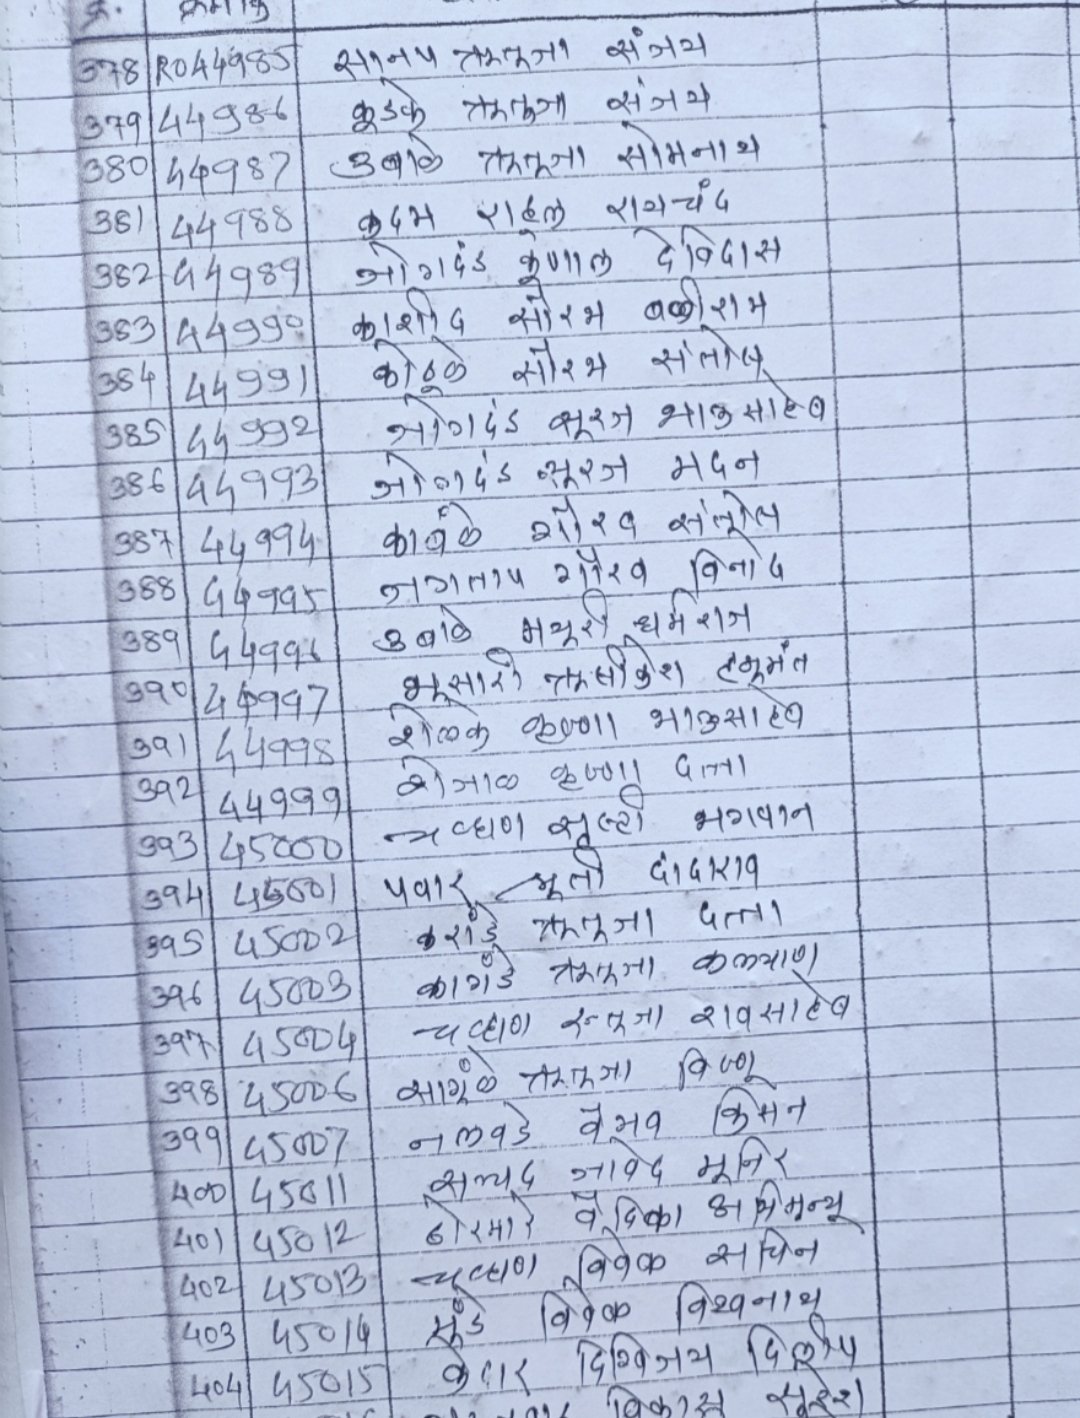 क्र. क्रमांक
378 R044985 सानप ऋतूजा संजय
379 44986 कुडके ऋतुजा संजय
380 44987 उबाळे ऋतूजा सोमनाथ
381 44988 कदम राहुल रायचंद
382 44989 जोगदंड कुणाल देविदास
383 44990 काशीद सौरभ बळीराम
384 44991 कोठुळे सौरभ संतोष
385 44992 जोगदंड सूरज भाऊसाहेब
386 44993 जोगदंड सूरज मदन
387 44994 कावळे गौरव संतोष
388 44995 जगताप गौरव विनोद
389 44996 उबाळे मयूरी धर्मराज
390 44997 भूसारी ऋषीकेश हनूमंत
391 44998 शेळके कृष्णा भाऊसाहेब
392 44999 शेजाळ कृष्णा दत्ता
393 45000 चव्हाण सृष्टी भगवान
394 45001 पवार दादाराव
395 45002 करांडे ऋतूजा दत्ता
396 45003 कागदे ऋतूजा कल्याण
397 45004 चव्हाण ऋतूजा रावसाहेब
398 45006 सांगुळे ऋतूजा विष्णू
399 45007 नलवडे वैभव किसन
400 45011 सय्यद जावेद मूनिर
401 45012 ढोरमारे वेदिका अभिमन्यू
402 45013 चव्हाण विवेक सचिन
403 45014 मूंडे विवेक विश्वनाथ
404 45015 केदार दिग्विजय दिलीप
विकास सूरेश